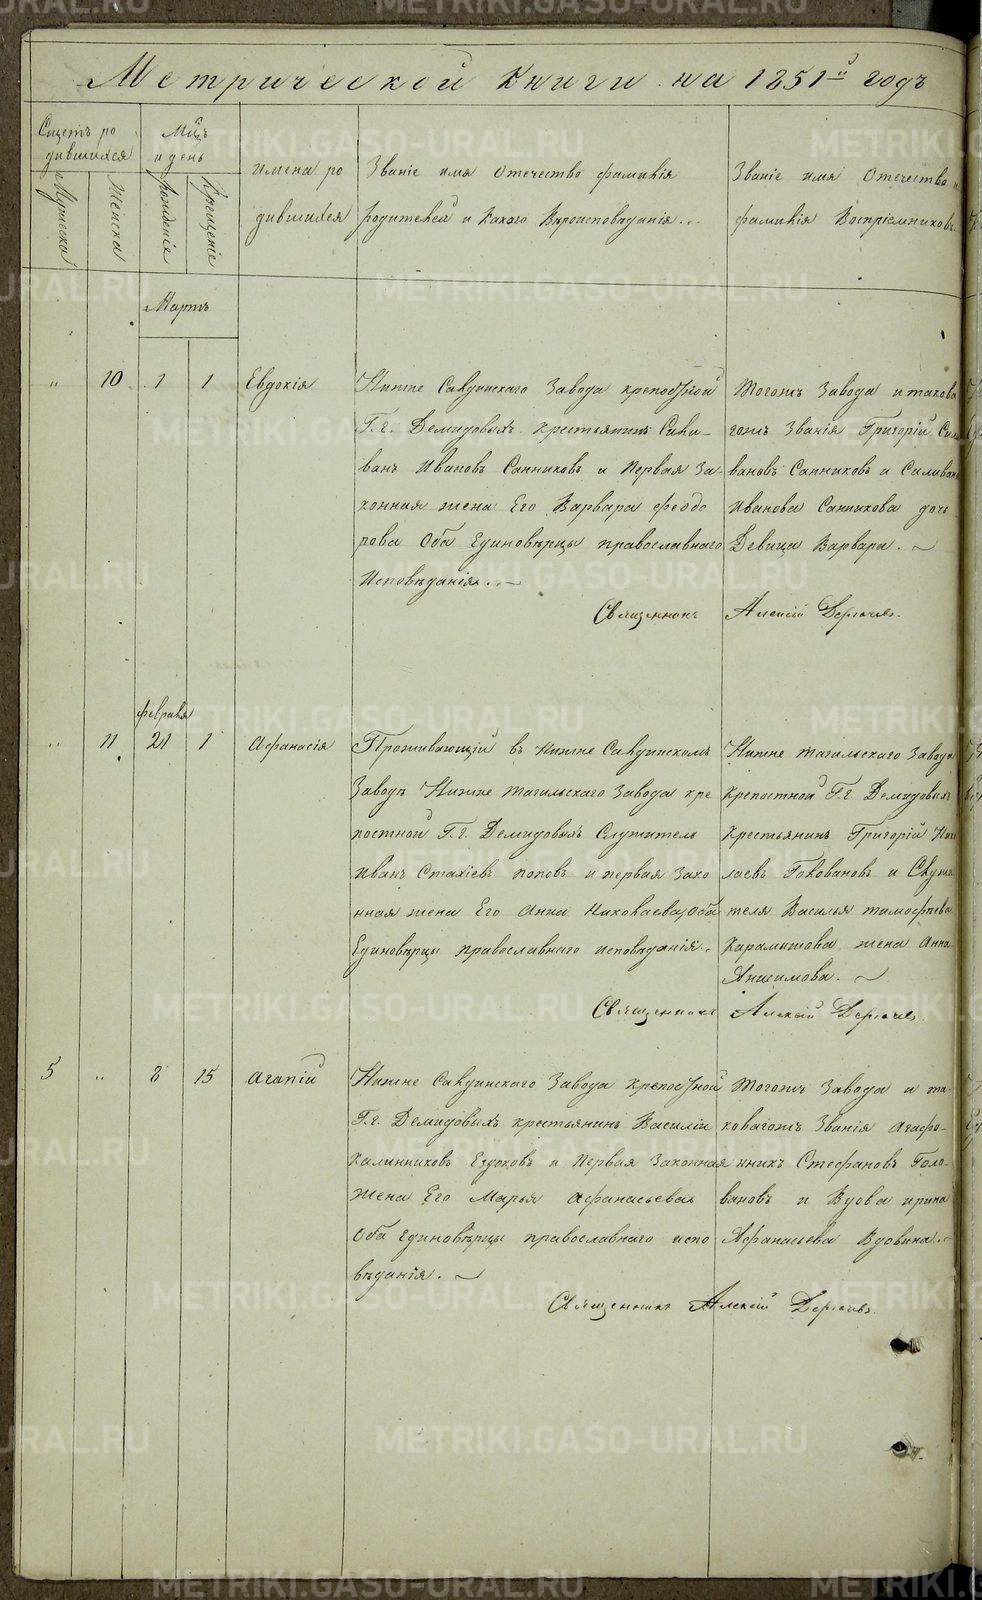 Метрической Книги на 1851й годъ
Счетъ ро
дившихся
Мцъ
и день
имена ро
дившихся
Званіе имя Отечество фамилія
родителей и Какого Вѣроисповѣданія...
Званіе имя Отечество и
фамилія Воспріемниковъ
Мужеска
Женска
рожденіе
Крещеніе
Мартъ
" 10 1 1 Евдокія
Нижне Салдинскаго Завода крепостной
Г.г. Демидовыхъ крестьянинъ Сили-
ванъ Ивановъ Санниковъ и Первая За-
конная жена Его Варвара Феодо
рова Оба Единовѣрцы православнаго
Исповѣданія.
Тогожъ Завода и такова
гожъ Званія Григорій Сили
вановъ Санниковъ и Силивана
Иванова Санникова дочь
Девица Варвара.
Священникъ Алексій Дерягинъ.
февраля
" 11 21 1 Афанасія
Проживающій въ Нижне Салдинскомъ
Заводѣ Нижне Тагильскаго Завода кре
постной Г.г. Демидовыхъ Служитель
Иванъ Стахіевъ Поповъ и первая Зако
нная жена Его Анна Николаева, Оба
Единовѣрцы православнаго исповѣданія.
Нижне Тагильскаго Завода
Крепостной Г.г. Демидовыхъ
Крестьянинъ Григорій Нико
лаевъ Головановъ и Служи
теля Василья Тимофѣева
Карамышова жена Анна
Анисимова.
Священникъ Алексій
5 " 8 15 Агапій
Нижне Салдинскаго Завода Крепостной
Г.г. Демидовыхъ крестьянинъ Василій
Калинниковъ Ездоковъ и Первая Законная
Жена Его Марья Афанасьева
Оба Единовѣрцы православнаго испо
вѣданія.
Тогожъ Завода и та-
ковагожъ Званія Агафо-
нникъ Стефановъ Голо-
вановъ и Вдова Ирина
Афанасьева Вдовина.
Священникъ Алексій